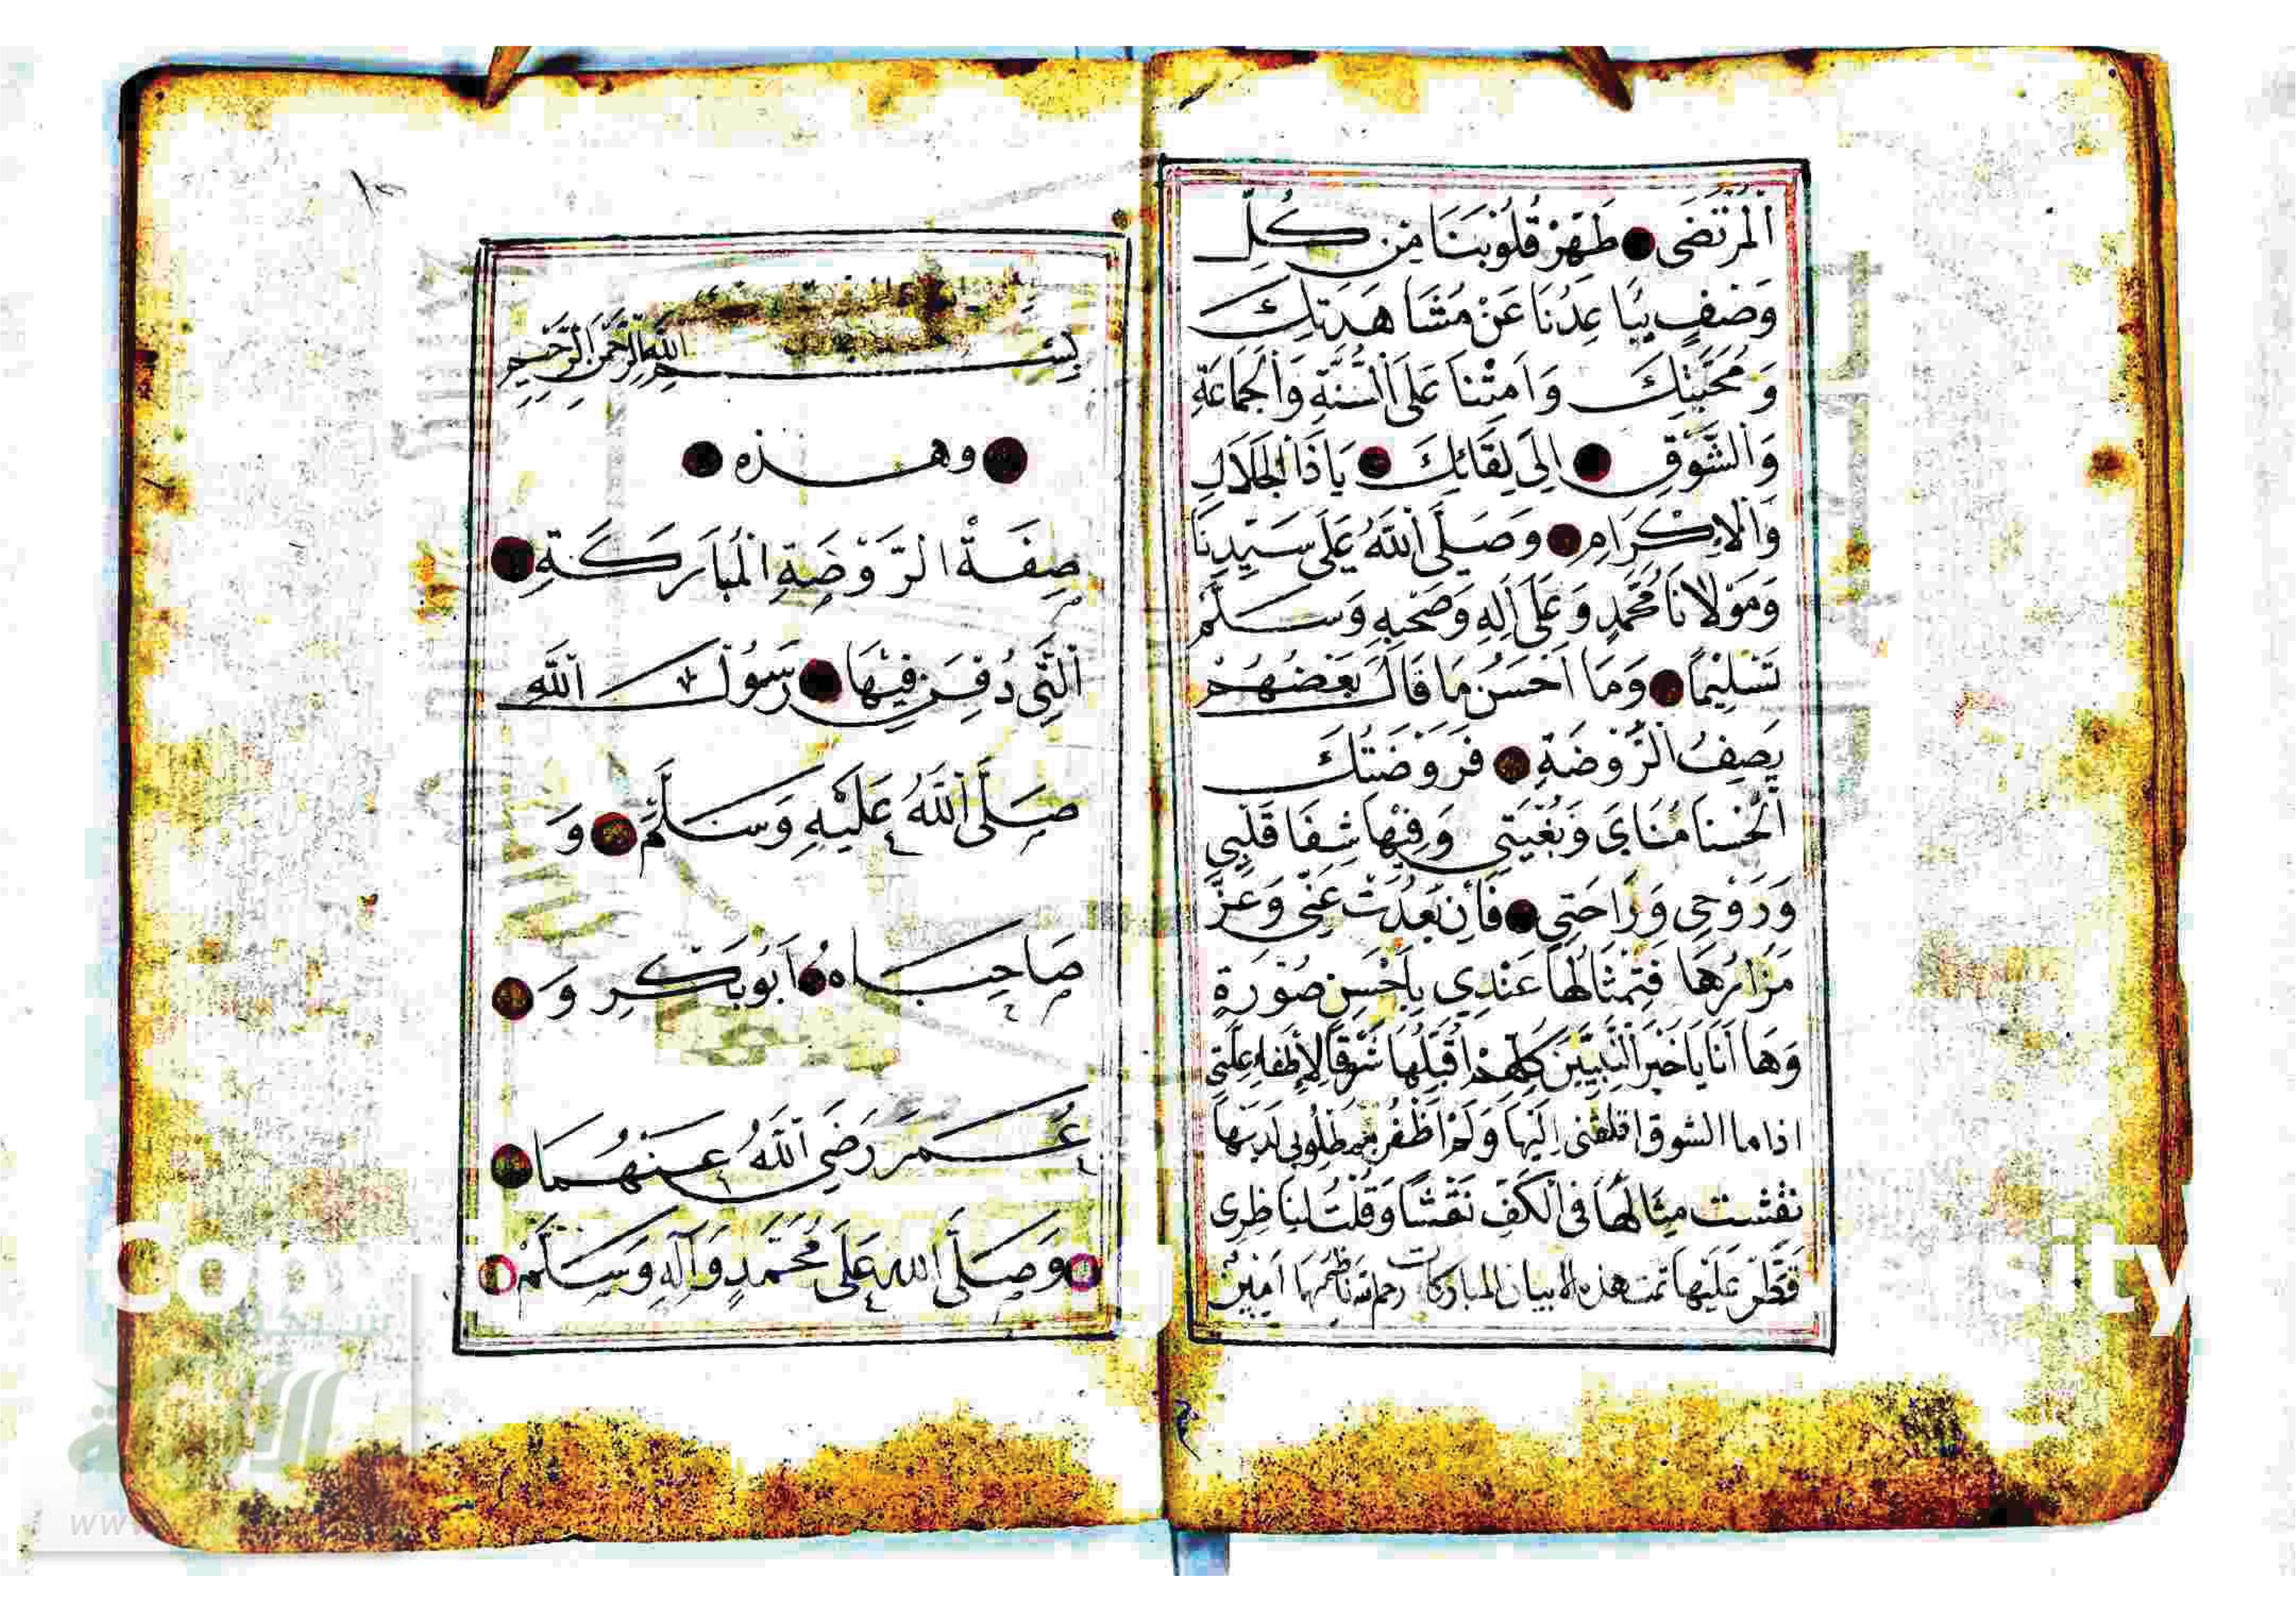 اَلْمُرْتَضَى طَهِّرْ قُلُوبَنَا مِنْ كُلِّ
وَصْفٍ يُبَاعِدُنَا عَنْ مُشَاهَدَتِكَ
وَمُحَبَّتِكَ وَاَمِتْنَا عَلَى السُّنَّةِ وَالْجَمَاعَةِ
وَالشَّوْقِ اِلَى لِقَائِكَ يَاذَا الْجَلَالِ
وَالْاِكْرَامِ وَصَلَّى اللهُ عَلَى سَيِّدِنَا
وَمَوْلَانَا مُحَمَّدٍ وَعَلَى اَلِهِ وَصَحْبِهِ وَسَلَّمَ
تَسْلِيْمًا وَمَا اَحْسَنُ مَا قَالَ بَعْضُهُمْ
يَصِفُ الرَّوْضَةِ فَرَوْضَتُكَ
اَلْحُسْنَا مُنَايَ وَبُغْيَتِي وَفِيْهَا شِفَا قَلْبِي
وَرَوْحِى وَرَاحَتِي فَاِنْ بَعُدَتْ عَنِّى وَعَزَّ
مَزَارُهَا فَتِمْثَالُهَا عَنْدِي بِاَحْسَنِ صُوْرَةٍ
وَهَا اَنَا يَا خَيْرَ النَّبِيِّيْنَ كُلِّهِمْ اُقَبِّلُهَا شَوْقًا لِاِطْفَاءِ عِلَّتِي
اذا ما الشوق اقلقنى اِلَيْهَا وَلَمْ اَظْفُرْ بِمَطْلُوبِى لَدَيْهَا
نقشت مِثَالَهَا فِى الْكَفِّ نَقْشًا وَقُلْتُ لِنَاظِرِى
قَصِّرْ عَلَيْهَا تمت هذه الابيات المباركات رحم الله ناظمها اَمِيْنَ
بِسْمِ اللهِ الرَّحْمَنِ الرَّحِيْمِ
وهذه
صِفَةُ الرَّوْضَةِ الْمُبَارَكَةِ
اَلَّتِى دُفِنَ فِيْهَا رَسُوْلُ اللهِ
صَلَّى اللهُ عَلَيْهِ وَسَلَّمَ وَ
صَاحِبَاهُ اَبُوبَكْرٍ وَ
عُمَرَ رَضِيَ اللهُ عَنْهُمَا
وَصَلَّى الله عَلَى مُحَمَّدٍ وَآلِهِ وَسَلَّمَ